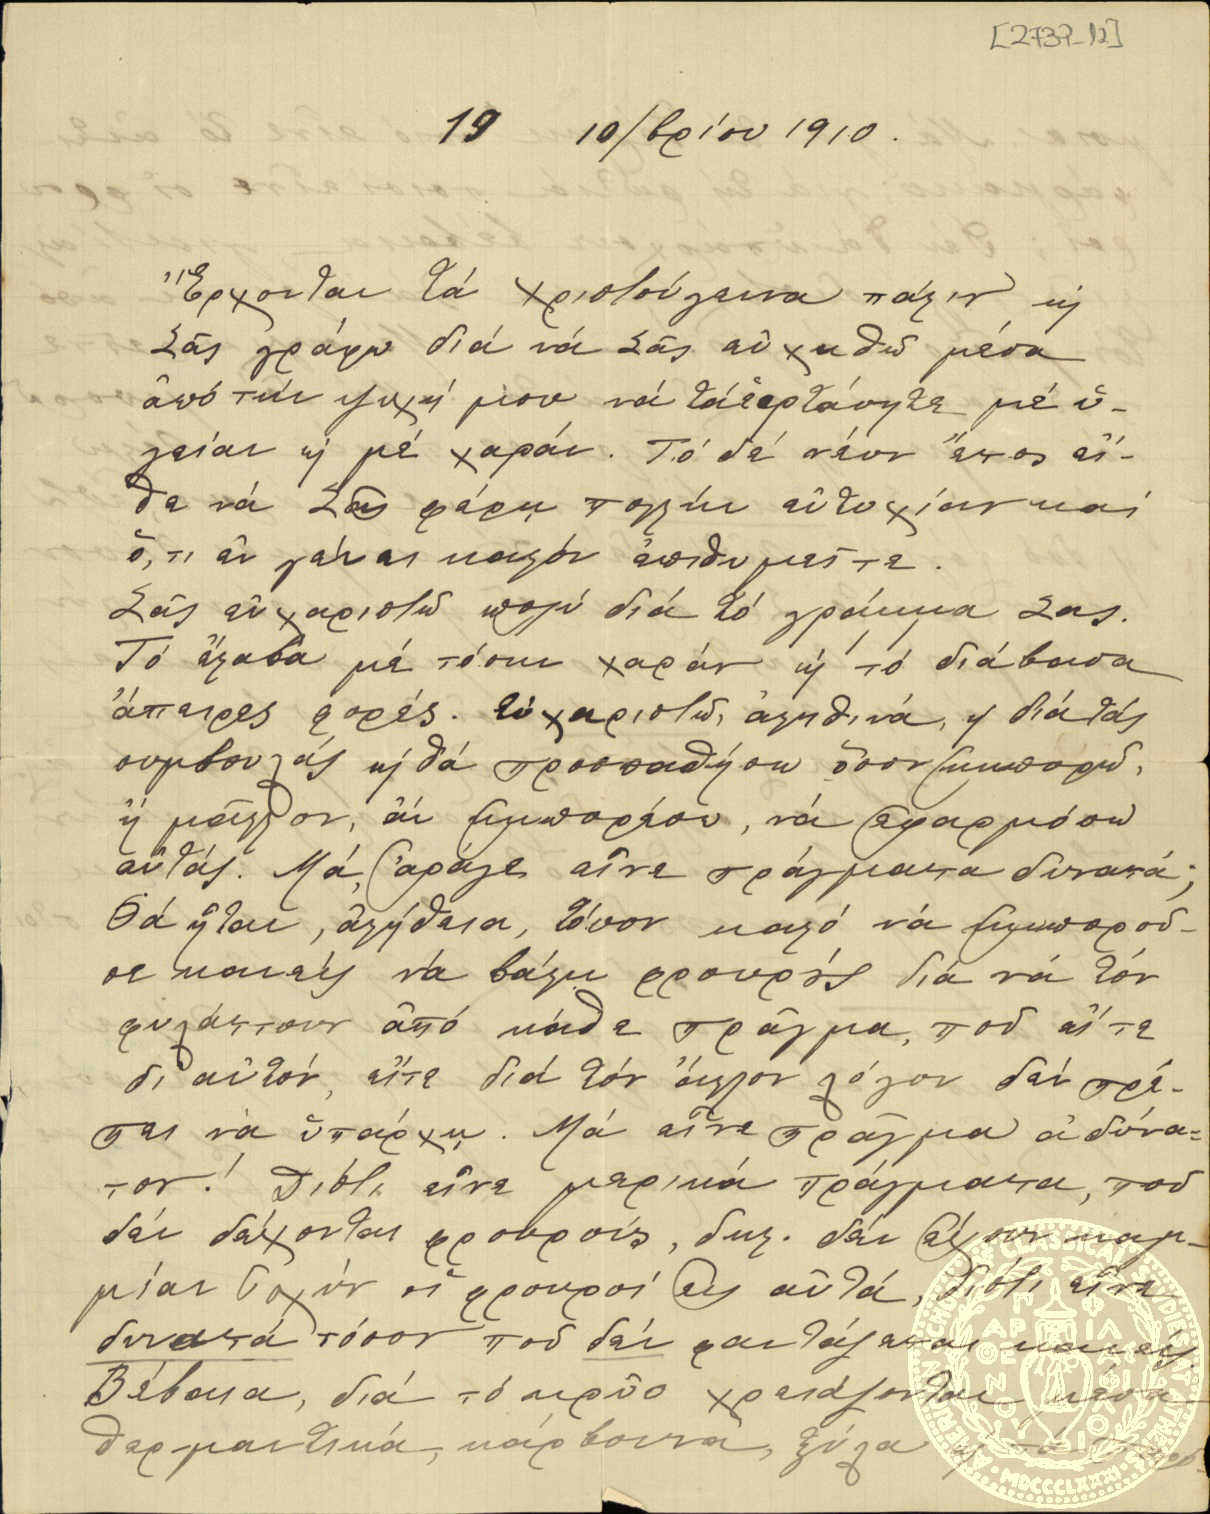 [2739-12]
19 10/βρίου 1910.
Ἔρχονται τά Χριστούγεννα πάλιν κ
Σᾶς γράφω διά νά Σᾶς εὐχηθῶ μέσα
ἀπό τήν ψυχή μου νά τά ἑορτάσητε μέ ὑ-
γείαν κ μέ χαράν. Τό δέ νέον ἔτος εἴ-
θε νά Σας φέρῃ πολλήν εὐτυχίαν καί
ὅ,τι ἐν γένει καλόν ἐπιθυμεῖτε.
Σᾶς εὐχαριστῶ πολύ διά τό γράμμα Σας.
Τό ἔλαβα μέ τόσην χαράν κ τό διάβασα
ἄπειρες φορές. Εὐχαριστῶ, ἀληθινά, κ διά τάς
συμβουλάς κ θά προσπαθήσω ὅσον ἠμπορῶ,
ἤ μᾶλλον, ἄν ἠμπορέσω, νά ἐφαρμόσω
αὐτάς. Μά, ἆράγε εἶνε πράγματα δυνατά;
Θά ἦταν, ἀλήθεια, τόσον καλό νά ἠμποροῦ-
σε κανείς νά βάλῃ φρουρούς διά νά τόν
φυλάττουν ἀπό κάθε πρᾶγμα, ποῦ εἴτε
δι αὐτόν, εἴτε διά τόν ἄλλον λόγον δέν πρέ-
πει νά ὑπάρχῃ. Μά εἶνε πρᾶγμα ἀδύνα-
τον! Διότι εἶνε μερικά πράγματα, ποῦ
δέν δέχονται φρουρούς, δηλ. δέν ἔχουν καμ-
μίαν ἰσχύν οἱ φρουροί εἰς αὐτά, διότι εἶνε
δυνατά τόσον ποῦ δέν φαντάζεται κανείς
Βέβαια, διά τό κρῦο χρειάζονται μέσα
θερμαντικά, κάρβουνα, ξύλα κ